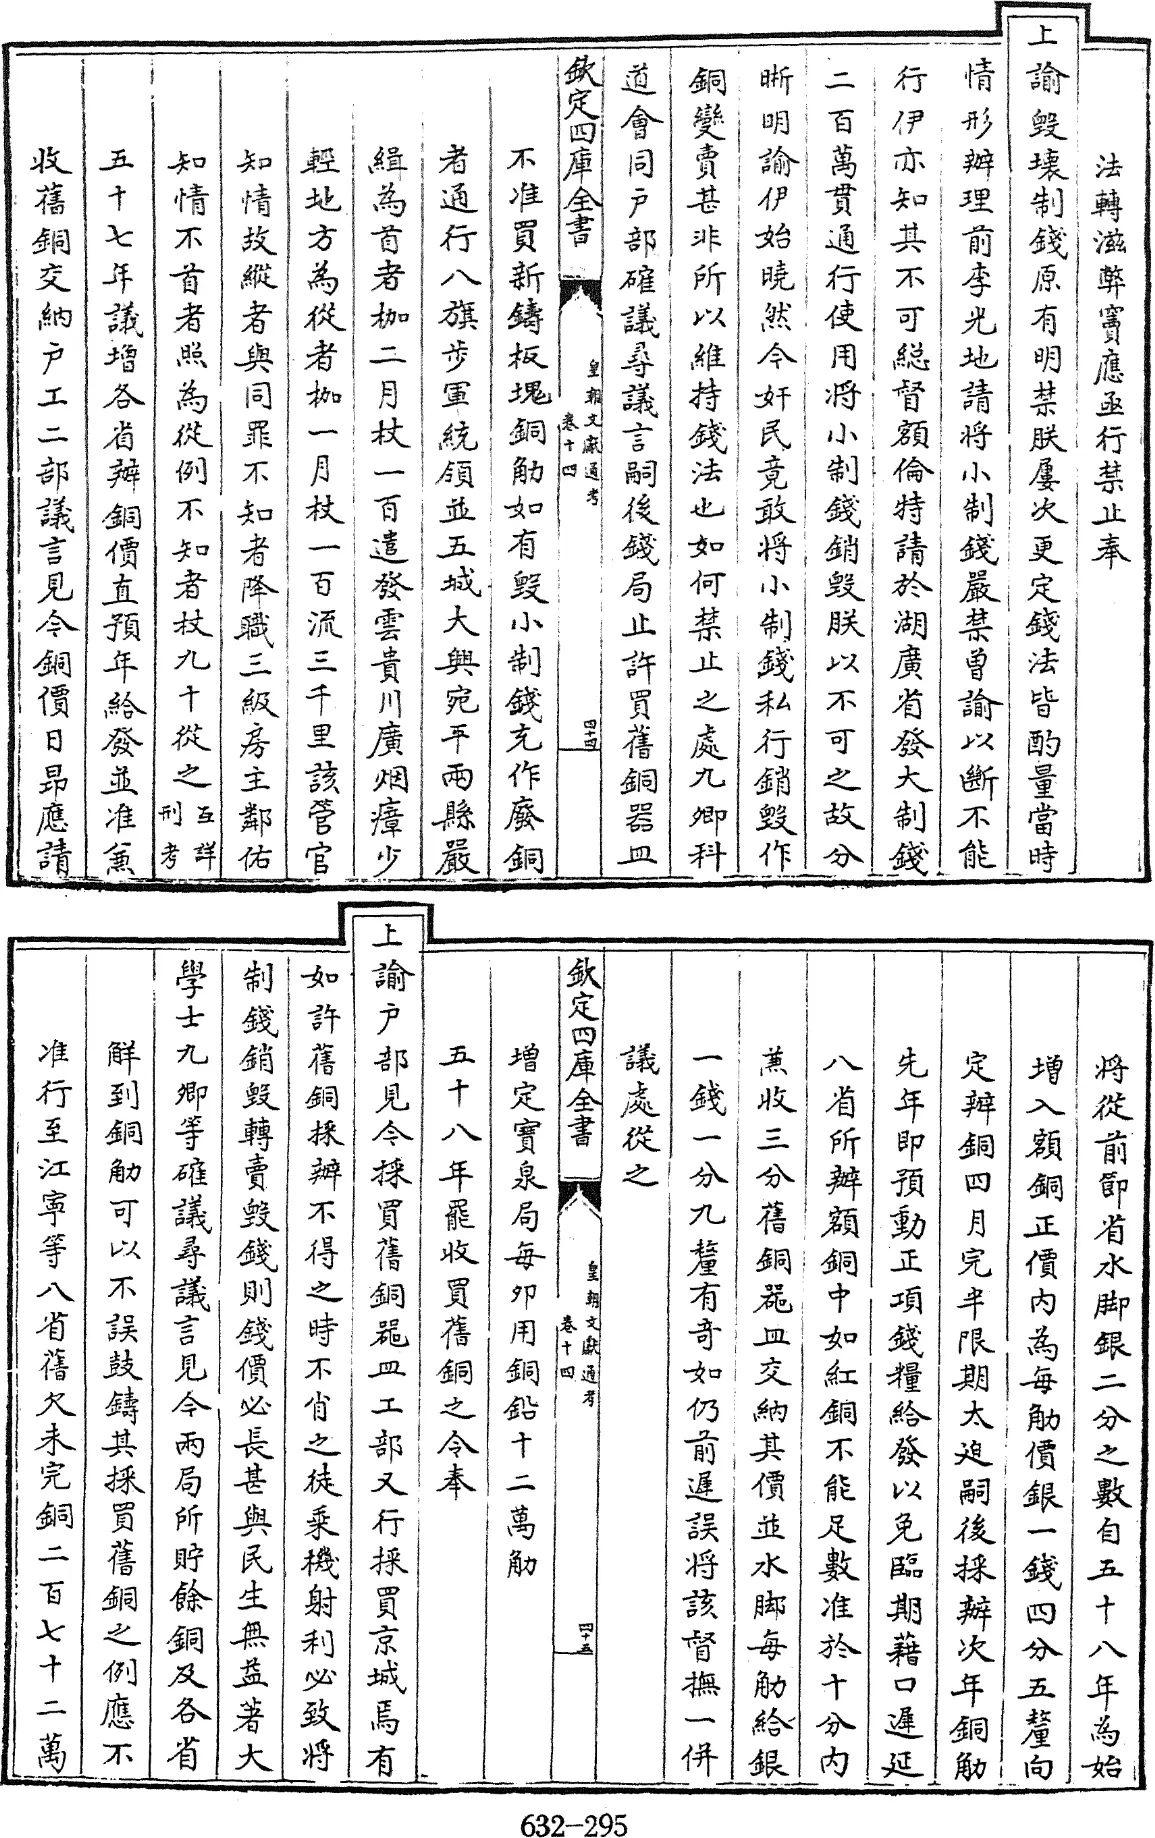 法轉滋弊竇應亟行禁止奉
上諭毀壞制錢原有明禁朕屢次更定錢法皆酌量當時
情形辦理前李光地請將小制錢嚴禁曾諭以斷不能
行伊亦知其不可総督額倫特請於湖廣省發大制錢
二百萬貫通行使用將小制錢銷毀朕以不可之故分
晣明諭伊始曉然今奸民竟敢將小制錢私行銷毀作
銅變賣甚非所以維持錢法也如何禁止之處九卿科
道會同户部確議尋議言嗣後錢局止許買舊銅器皿
欽定四庫全書
皇朝文獻通考
卷十四
四十四
不准買新鑄板塊銅觔如有毀小制錢充作廢銅
者通行八旗步軍統領並五城大興宛平兩縣嚴
緝為首者枷二月杖一百遣發雲貴川廣烟瘴少
輕地方為從者枷一月杖一百流三千里該管官
知情故縱者與同罪不知者降職三級房主鄰佑
知情不首者照為從例不知者杖九十從之互詳刑考
五十七年議增各省辦銅價直預年給發並准兼
收舊銅交納户工二部議言見今銅價日昻應請
將從前節省水脚銀二分之數自五十八年為始
增入額銅正價内為每觔價銀一錢四分五釐向
定辦銅四月完半限期太迫嗣後採辦次年銅觔
先年即預動正項錢糧給發以免臨期藉口遲延
八省所辦額銅中如紅銅不能足數准於十分内
兼收三分舊銅器皿交納其價並水脚每觔給銀
一錢一分九釐有奇如仍前遲誤將該督撫一併
議處從之
欽定四庫全書
皇朝文獻通考
卷十四
四十五
增定寶泉局每卯用銅鉛十二萬觔
五十八年罷收買舊銅之令奉
上諭户部見今採買舊銅器皿工部又行採買京城焉有
如許舊銅採辦不得之時不肖之徒乘機射利必致將
制錢銷毀轉賣毀錢則錢價必長甚與民生無益著大
學士九卿等確議尋議言見今兩局所貯餘銅及各省
觧到銅觔可以不誤鼓鑄其採買舊銅之例應不
准行至江寧等八省舊欠未完銅二百七十二萬
632-295